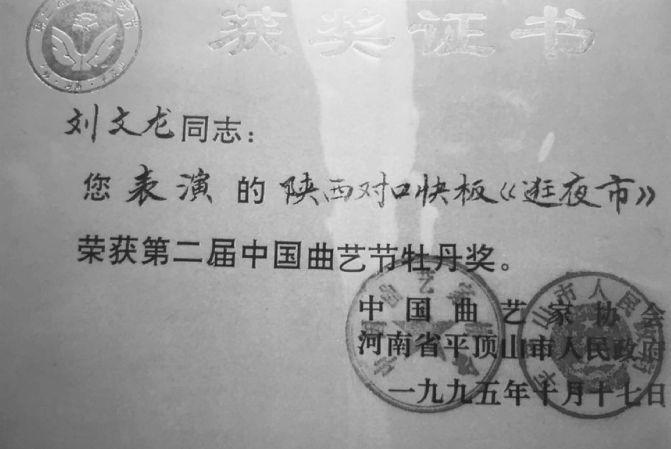 获奖证书
刘文龙同志：
您表演的陕西对口快板《逛夜市》
荣获第二届中国曲艺节牡丹奖。
中国曲艺家协会
河南省平顶山市人民政府
一九九五年十月十七日